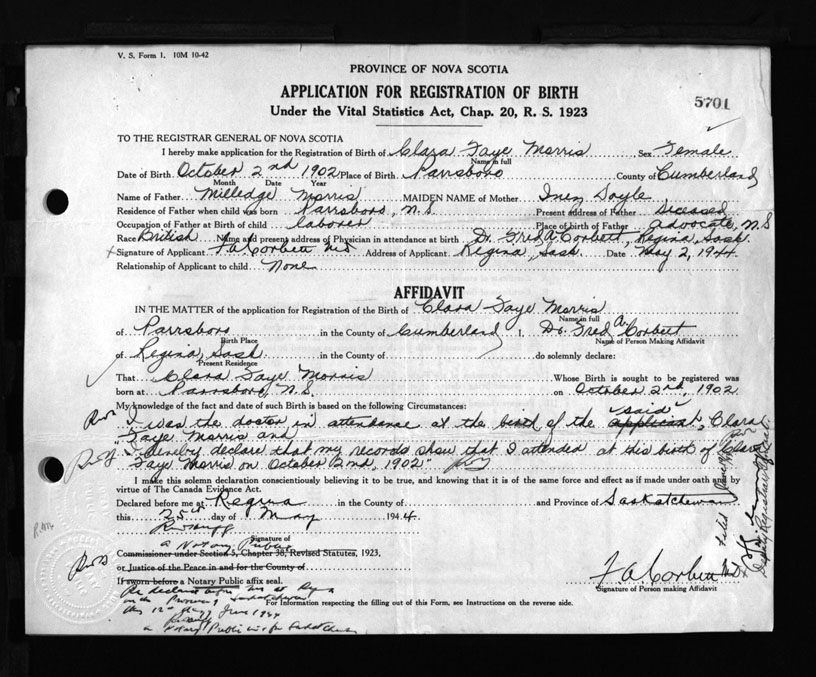 V. S. Form 1. 10M 10-42
PROVINCE OF NOVA SCOTIA
APPLICATION FOR REGISTRATION OF BIRTH
5701
Under the Vital Statistics Act, Chap. 20, R. S. 1923
TO THE REGISTRAR GENERAL OF NOVA SCOTIA
I hereby make application for the Registration of Birth of Clara Faye Morris Sex Female
Name in full
Date of Birth October 2nd 1902 Place of Birth Parrsboro County of Cumberland
Month Date Year
Name of Father Milledge Morris MAIDEN NAME of Mother Inez Doyle
Residence of Father when child was born Parrsboro, N.S. Present address of Father deceased
Occupation of Father at Birth of child laborer Place of birth of Father Advocate, N.S
Race British Name and present address of Physician in attendance at birth Dr. Fred A. Corbett, Regina, Sask.
Signature of Applicant F.A. Corbett MD Address of Applicant Regina, Sask. Date May 2, 1944
Relationship of Applicant to child None
AFFIDAVIT
IN THE MATTER of the application for Registration of the Birth of Clara Faye Morris
Name in full
of Parrsboro in the County of Cumberland I, Dr. Fred A. Corbett
Birth Place Name of Person Making Affidavit
of Regina, Sask in the County of do solemnly declare:
Present Residence
That Clara Faye Morris Whose Birth is sought to be registered was
born at Parrsboro, N.S. on October 2nd, 1902
My knowledge of the fact and date of such Birth is based on the following Circumstances:
"said"
I was the doctor in attendance at the birth of the applicant, Clara
Faye Morris and
I hereby declare that my records show that I attended at this birth of Clara
Faye Morris on October 2nd, 1902"
I make this solemn declaration conscientiously believing it to be true, and knowing that it is of the same force and effect as if made under oath and by
virtue of The Canada Evidence Act.
Declared before me at Regina in the County of and Province of Saskatchewan
this 25th day of May 1944
Signature of
a Notary Public
Commissioner under Section 5, Chapter 38, Revised Statutes, 1923,
or Justice of the Peace in and for the County of
If sworn before a Notary Public affix seal.
F.A. Corbett MD
Signature of Person making Affidavit
Re declared before me at Regina
in the Province of Saskatchewan
this 12th day of June 1944
For Information respecting the filling out of this Form, see Instructions on the reverse side.
a Notary Public in & for Saskatchewan